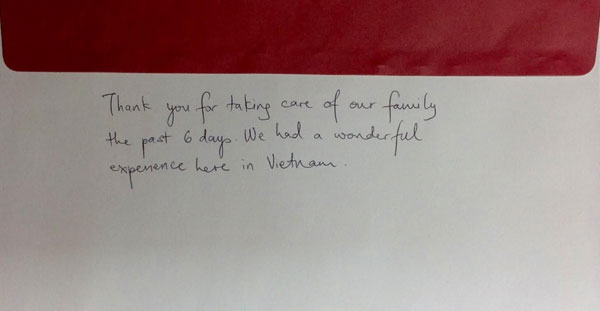 Thank you for taking care of our family
the past 6 days. We had a wonderful
experience here in Vietnam.